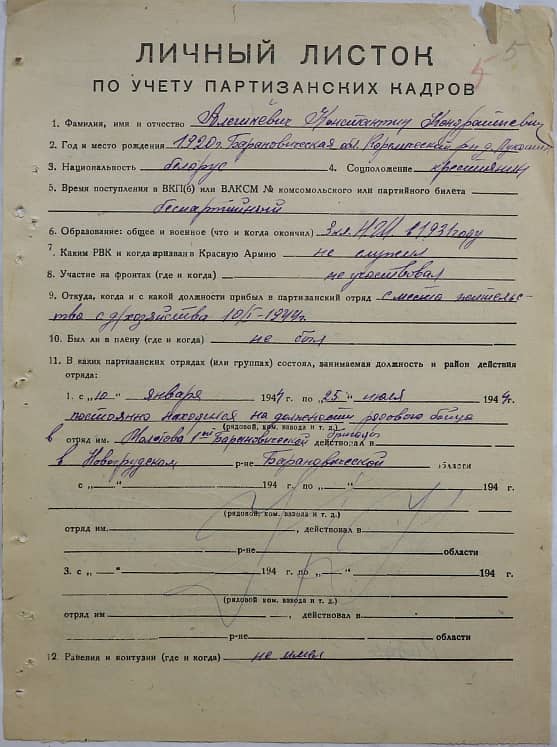 5 5
ЛИЧНЫЙ ЛИСТОК
ПО УЧЕТУ ПАРТИЗАНСКИХ КАДРОВ
1. Фамилия, имя и отчество Алешкевич Константин
2. Год и место рождения 1920 г. Барановическая обл. Кореличский р-н д.
3. Национальность белорус 4. Соцположение крестьянин
5. Время поступления в ВКП(б) или ВЛКСМ № комсомольского или партийного билета
беспартийный
6. Образование: общее и военное (что и когда окончил) 3 кл. в 1931 году
7. Каким РВК и когда призван в Красную Армию не служил
8. Участие на фронтах (где и когда) не участвовал
9. Откуда, когда и с какой должности прибыл в партизанский отряд с места жительс-
тва с д/хозяйства 10/I-1944 г.
10. Был ли в плену (где и когда) не был
11. В каких партизанских отрядах (или группах) состоял, занимаемая должность и район действия
отряда:
1. с „10“ января 1944 г. по „25“ июля 1944 г.
постоянно находился на должности рядового бойца
(рядовой, ком. взвода и т. д.)
в отряд им. Молотова 1ой Барановической бригады действовал в
в Новогрудском р-не Барановической области
с „ “ 194 г. по „ “ 194 г.
(рядовой, ком. взвода и т. д.)
отряд им. , действовал в
р-не области
3. с „ “ 194 г. по „ “ 194 г.
(рядовой, ком. взвода и т. д.)
отряд им. , действовал в
р-не области
12. Ранения и контузии (где и когда) не имел